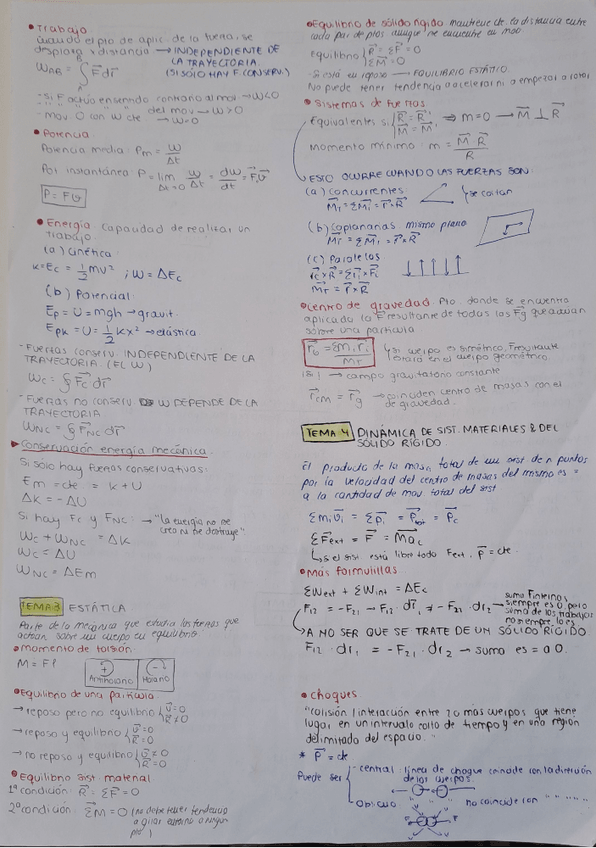 • Trabajo
Cuando el pto de aplic. de la fuerza se
desplaza x distancia → INDEPENDIENTE DE
LA TRAYECTORIA.
(SI SÓLO HAY F. CONSERV.)
W_AB = ∫_A^B F⃗ dr⃗
- Si F actúa en sentido contrario al mov → W<0
- " " " " " del mov → W>0
- mov. 0 con v⃗ cte → W=0
• Potencia
Potencia media: Pm = W/Δt
Pot instantánea P = lim_{Δt=0} W/Δt = dW/dt = F⃗·v⃗
P = Fv
• Energía Capacidad de realizar un
trabajo
(a) Cinética
K = Ec = 1/2 mv² ; W = ΔEc
(b) Potencial
Ep = U = mgh → gravit.
Epk = U = 1/2 kx² → elástica
- Fuerzas conserv. INDEPENDIENTE DE LA
TRAYECTORIA (EL W)
Wc = ∮ F⃗c dr⃗
- Fuerzas no conserv W DEPENDE DE LA
TRAYECTORIA
WNC = ∮ F⃗NC dr⃗
▸ Conservación energía mecánica
Si solo hay fuerzas conservativas:
Em = cte = K + U
ΔK = -ΔU
Si hay Fc y FNC: → "la energía no se
crea ni se destruye"
Wc + WNC = ΔK
Wc = ΔU
WNC = ΔEm
TEMA 3 ESTÁTICA
Parte de la mecánica que estudia las fuerzas que
actúan sobre un cuerpo en equilibrio
• Momento de torsión
M = F·
Antihorario Horario
• Equilibrio de una partícula
→ reposo pero no equilibrio { v⃗=0 R⃗≠0
→ reposo y equilibrio { v⃗=0 R⃗=0
→ no reposo y equilibrio { v⃗≠0 R⃗=0
• Equilibrio sist. material
1ª condición: R⃗ = ΣF⃗ = 0
2ª condición: ΣM⃗ = 0 (no debe tener tendencia
a girar entorno a ningún
pto)
• Equilibrio de sólido rígido mantiene cte la distancia entre
cada par de ptos aunque se encuentre en mov.
equilibrio { R⃗ = ΣF⃗ = 0 ΣM⃗ = 0
- Si está en reposo → EQUILIBRIO ESTÁTICO.
No puede tener tendencia a acelerar ni a empezar a rotar
• Sistemas de fuerzas
Equivalentes si { R⃗ = R⃗' M⃗ = M⃗' ⇒ m=0 → M⃗ ⊥ R⃗
Momento mínimo: m = M⃗·R⃗ / R
ESTO OCURRE CUANDO LAS FUERZAS SON:
(a) Concurrentes
M⃗T = ΣM⃗i = r⃗ × R⃗
se cortan
(b) Coplanarias mismo plano
M⃗T = ΣM⃗i = r⃗ × R⃗
(c) Paralelas
r⃗c × R⃗ = Σr⃗i × F⃗i
M⃗T = r⃗ × R⃗
• Centro de gravedad Pto. donde se encuentra
aplicado la F resultante de todas las F⃗g que actúan
sobre una partícula
r⃗G = Σmi ri / MT
si cuerpo es simétrico, F resultante
estará en el cuerpo geométrico.
→ campo gravitatorio constante
r⃗CM = r⃗g → coinciden centro de masas con el
de gravedad.
TEMA 4 DINÁMICA DE SIST. MATERIALES & DEL
SÓLIDO RÍGIDO
El producto de la masa total de un sist. de n puntos
por la velocidad del centro de masas del mismo es =
a la cantidad de mov total del sist
Σmi v⃗i = Σp⃗i = p⃗tot = p⃗c
ΣF⃗ext = F⃗ = Ma⃗c
si el sist está libre toda Fext, p⃗ = cte.
• Más formulillas
ΣWext + ΣWint = ΔEc
F12 = -F21 → F12 · dr1 ≠ -F21 · dr2 →
suma F internas
siempre es 0 pero
suma de los trabajos
no siempre lo es
A NO SER QUE SE TRATE DE UN SÓLIDO RÍGIDO
F12 · dr1 = -F21 · dr2 → suma es = a 0.
• Choques
"colisión/interacción entre 2 o más cuerpos que tiene
lugar en un intervalo corto de tiempo y en una región
delimitada del espacio."
* P⃗ = cte
Puede ser
central: línea de choque coincide con la dirección
de los cuerpos.
Oblicuo: " " no coincide con " " " "